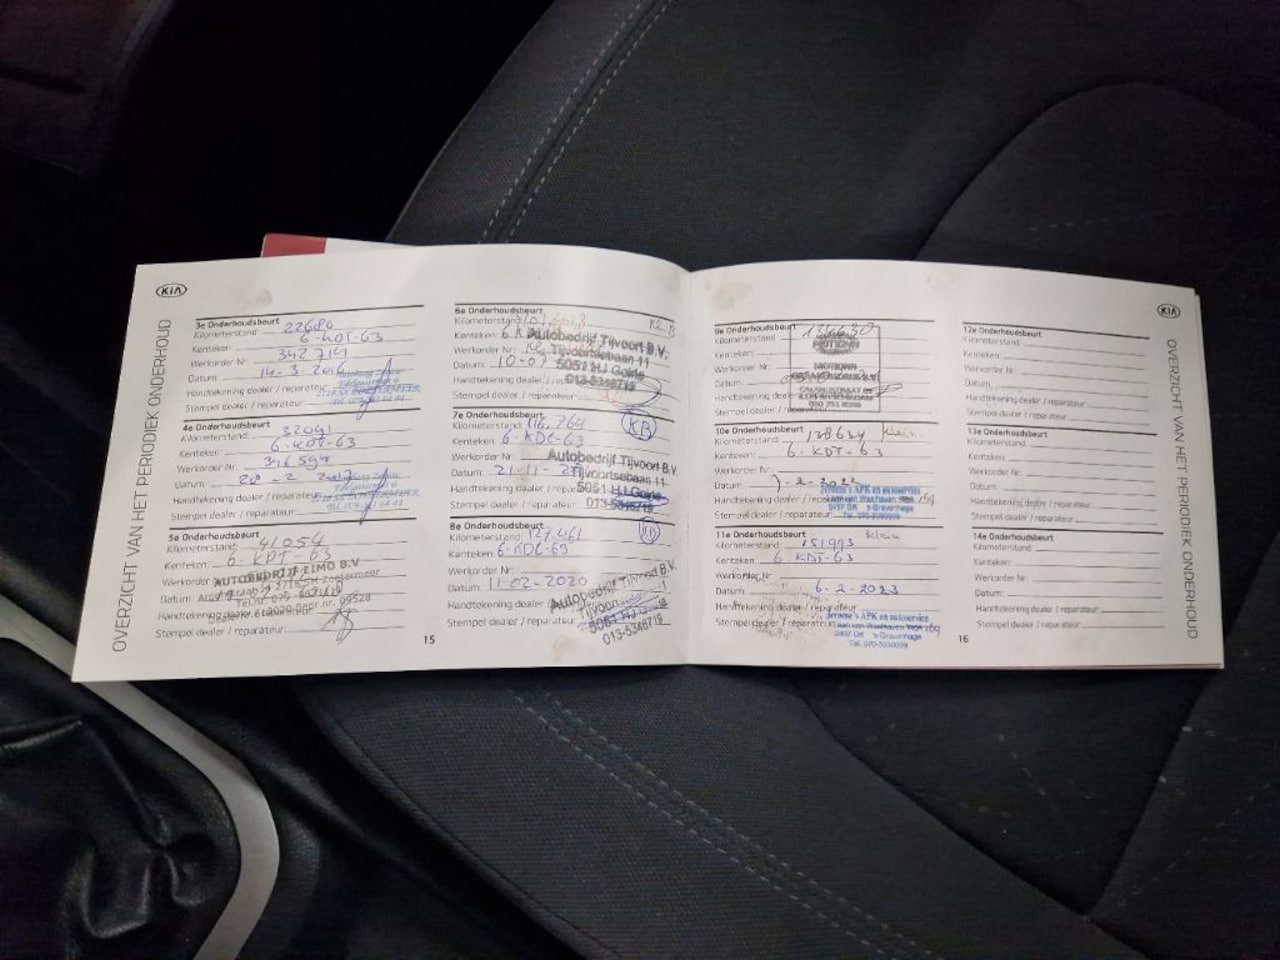 KIA
OVERZICHT VAN HET PERIODIEK ONDERHOUD
3e Onderhoudsbeurt
Kilometerstand: 22680
Kenteken: 6-KDT-63
Werkorder Nr: 342714
Datum: 14-3-2016
Handtekening dealer / reparateur:
Stempel dealer / reparateur:
4e Onderhoudsbeurt
Kilometerstand: 32041
Kenteken: 6-KDT-63
Werkorder Nr: 346594
Datum: 28-2-2017
Handtekening dealer / reparateur:
Stempel dealer / reparateur:
5e Onderhoudsbeurt
Kilometerstand: 41054
Kenteken: 6-KDT-63
Werkorder
AUTOBEDRIJF EIMO B.V
Zoetermeer
Datum:
Handtekening dealer / reparateur:
Stempel dealer / reparateur:
15
6e Onderhoudsbeurt
Kilometerstand:
Kenteken: 6
Werkorder Nr:
Datum: 10-0
Handtekening dealer /
Stempel dealer / reparateur:
Autobedrijf Tijvoort B.V.
Tijvoortsebaan 11
5051 HJ Goirle
013-5346719
7e Onderhoudsbeurt
Kilometerstand: 116.764
KB
Kenteken: 6-KDT-63
Werkorder Nr:
Datum: 21-11-
Handtekening dealer /
Stempel dealer / reparateur:
Autobedrijf Tijvoort B.V.
Tijvoortsebaan 11
5051 HJ Goirle
013-5346719
8e Onderhoudsbeurt
Kilometerstand: 127.461
KB
Kenteken: 6-KDT-63
Werkorder Nr:
Datum: 11-02-2020
Handtekening dealer
Stempel dealer / reparateur:
Autobedrijf Tijvoort B.V.
5051 HJ Goirle
013-5346719
KIA
OVERZICHT VAN HET PERIODIEK ONDERHOUD
9e Onderhoudsbeurt
Kilometerstand: 136630
Kenteken:
Werkorder Nr:
Datum:
Handtekening dealer
Stempel dealer / reparateur:
10e Onderhoudsbeurt
Kilometerstand: 138634 klein
Kenteken: 6-KDT-63
Werkorder Nr:
Datum: 7-2-2022
Handtekening dealer / reparateur
Stempel dealer / reparateur:
Jerome's APK en autoservice
2497 GK 's-Gravenhage
11e Onderhoudsbeurt klein
Kilometerstand: 151993
Kenteken: 6-KDT-63
Werkorder Nr:
Datum: 6-2-2023
Handtekening dealer / reparateur
Stempel dealer / reparateur:
Jerome's APK en autoservice
2497 GK 's-Gravenhage
16
12e Onderhoudsbeurt
Kilometerstand:
Kenteken:
Werkorder Nr:
Datum:
Handtekening dealer / reparateur:
Stempel dealer / reparateur:
13e Onderhoudsbeurt
Kilometerstand:
Kenteken:
Werkorder Nr:
Datum:
Handtekening dealer / reparateur:
Stempel dealer / reparateur:
14e Onderhoudsbeurt
Kilometerstand:
Kenteken:
Werkorder Nr:
Datum:
Handtekening dealer / reparateur:
Stempel dealer / reparateur: